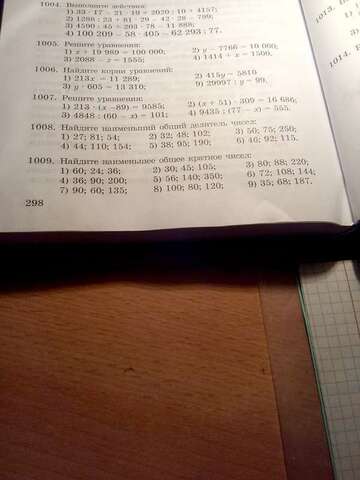 1004. Выполните действия:
1) 33 · 17 − 21 · 19 + 2020 : 10 + 4157;
2) 1288 : 23 + 81 · 29 − 42 · 28 − 799;
3) 4590 : 45 + 203 · 78 − 11 888;
4) 100 209 − 58 · 405 − 62 293 : 77.
1005. Решите уравнения:
1) x + 19 989 = 100 000;
2) y − 7766 = 10 000;
3) 2088 − z = 1555;
4) 1414 + x = 1500.
1006. Найдите корни уравнений:
1) 213x = 11 289;
2) 415y = 5810
3) y · 605 = 13 310;
9) 29097 : y = 99.
1007. Решите уравнения:
1) 213 · (x − 89) = 9585;
2) (x + 51) · 309 = 16 686;
3) 4848 : (60 − x) = 101;
4) 9435 : (77 − x) = 555.
1008. Найдите наибольший общий делитель чисел:
1) 27; 81; 54;
2) 32; 48; 102;
3) 50; 75; 250;
4) 44; 110; 154;
5) 38; 95; 190;
6) 46; 92; 115.
1009. Найдите наименьшее общее кратное чисел:
1) 60; 24; 36;
2) 30; 45; 105;
3) 80; 88; 220;
4) 36; 90; 200;
5) 56; 140; 350;
6) 72; 108; 144;
7) 90; 60; 135;
8) 100; 80; 120;
9) 35; 68; 187.
298
1013.
1)
3)
1014.